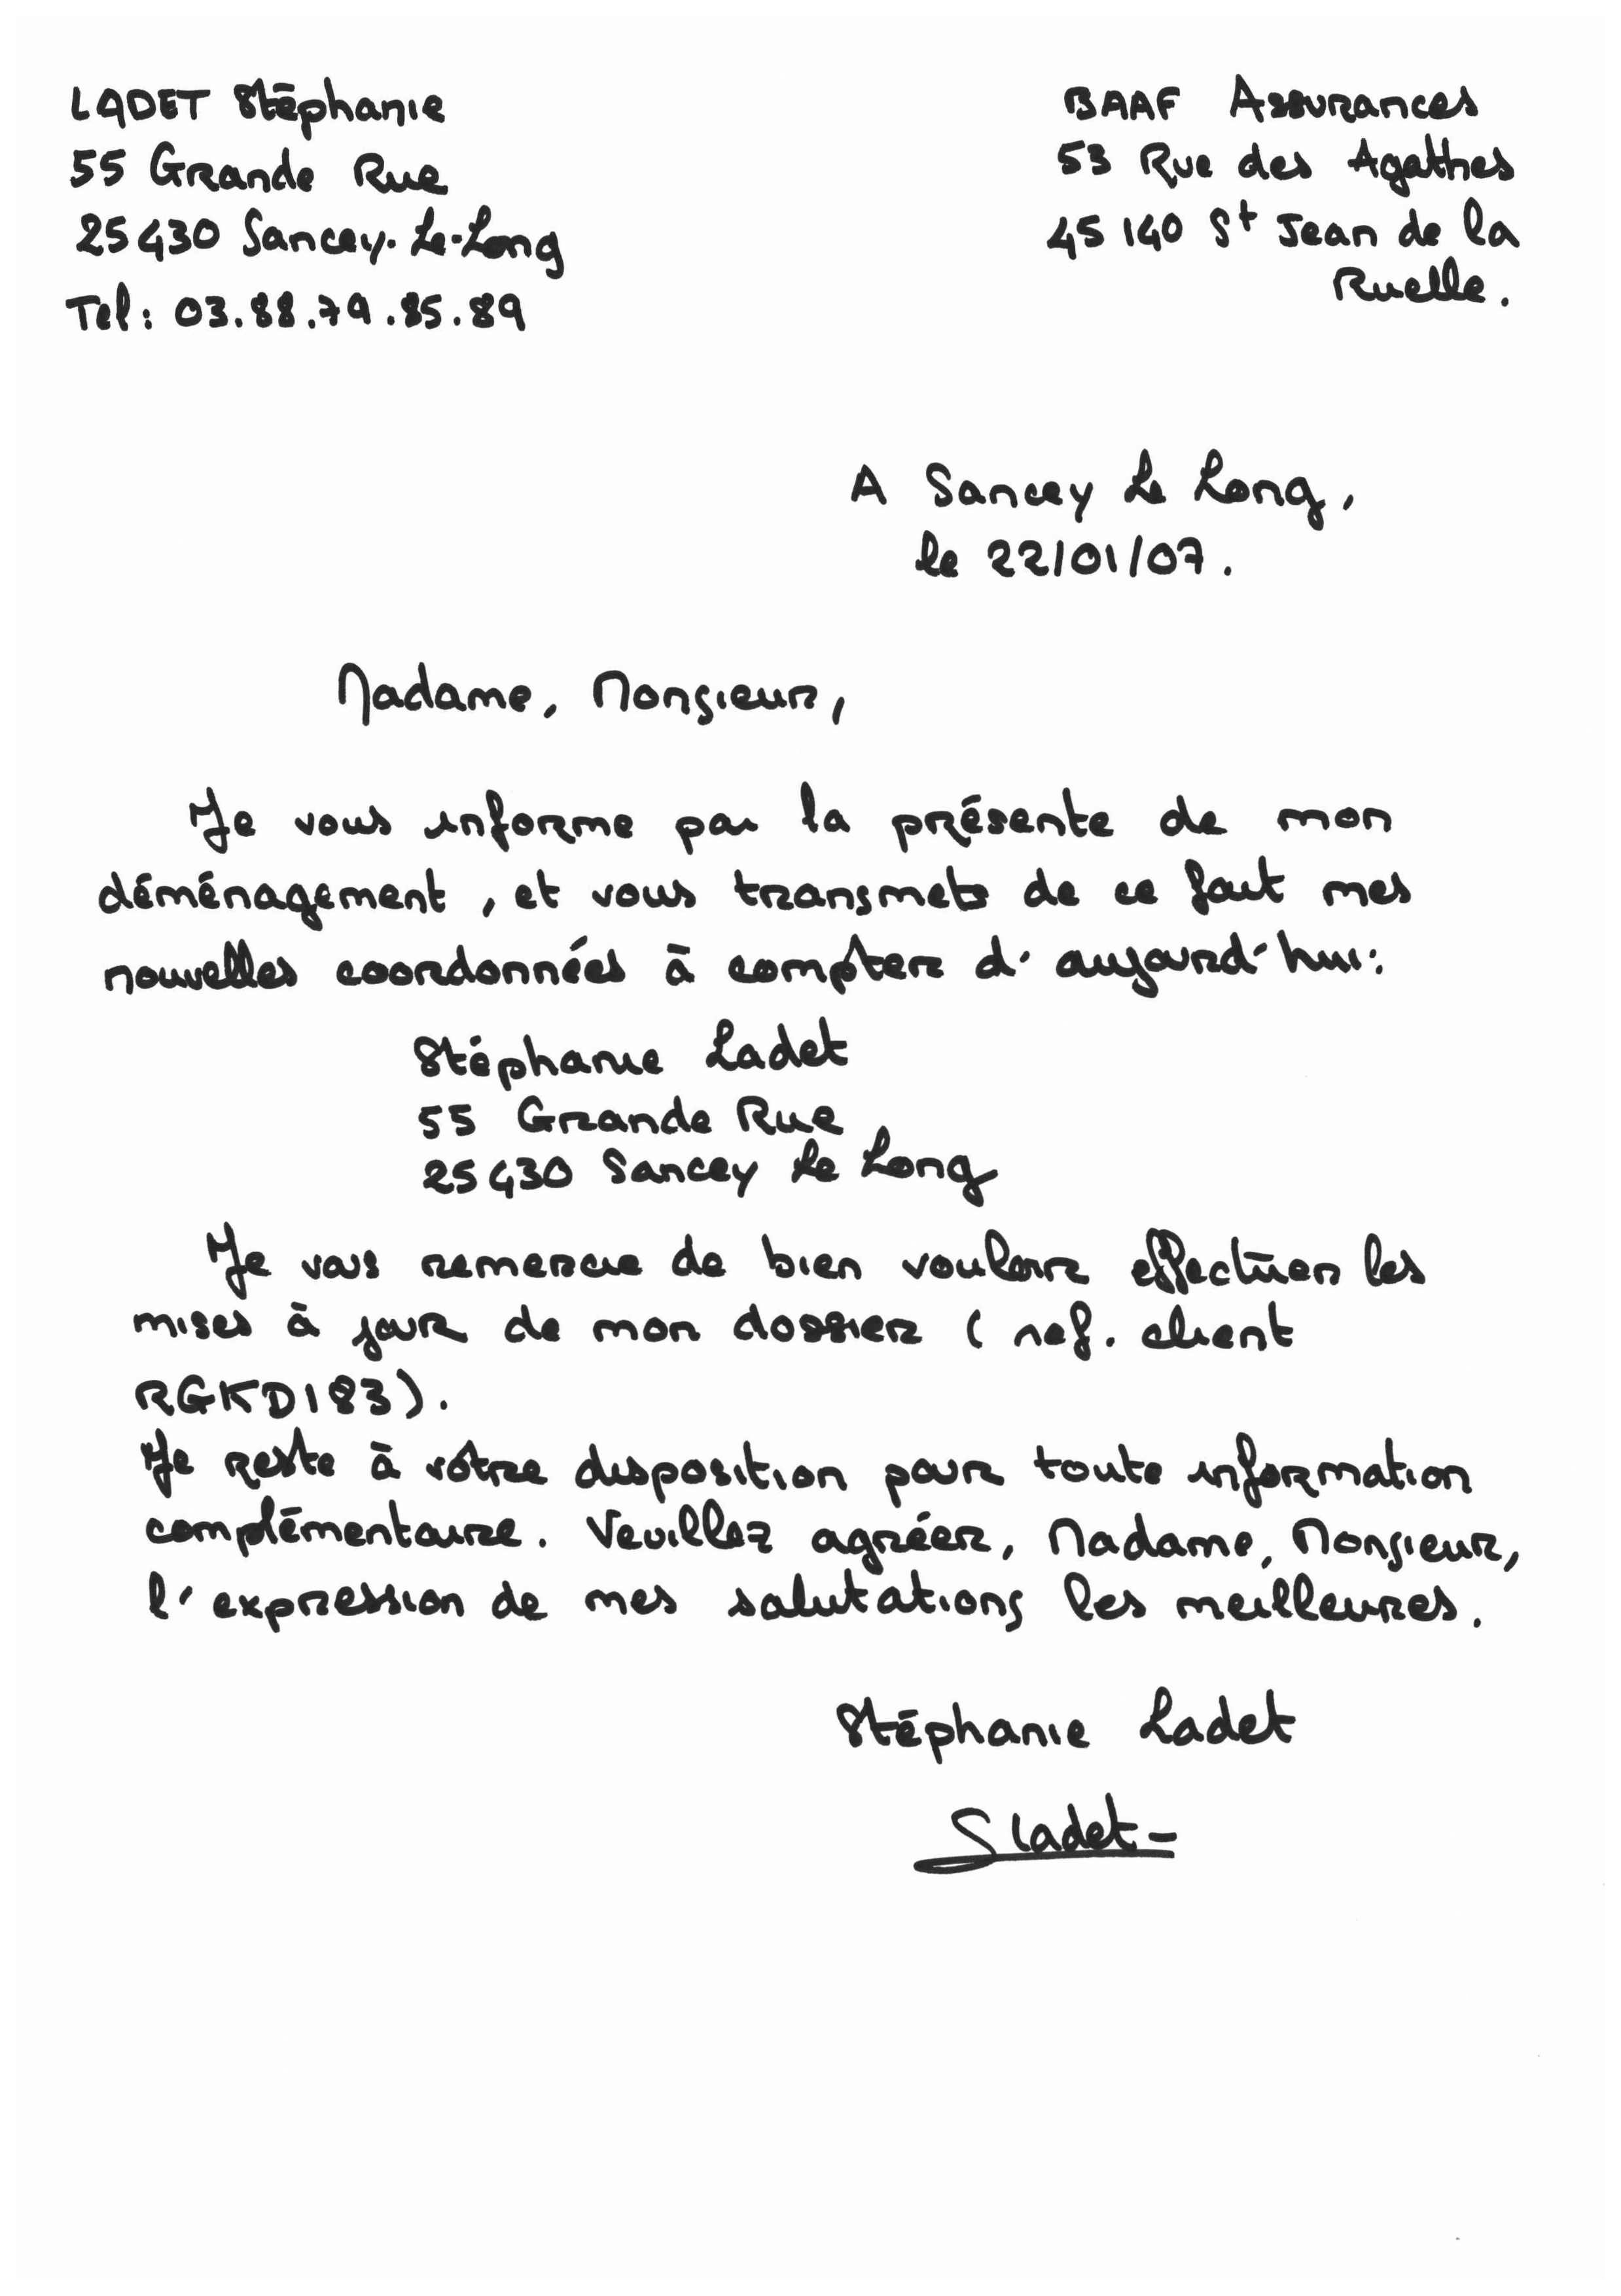 LADET Stéphanie
55 Grande Rue
25430 Sancey-Le-Long
Tel: 03.88.79.85.89
BAAF Assurances
53 Rue des Agathes
45140 St Jean de la
Ruelle.
A Sancey Le Long,
le 22/01/07.
Madame, Monsieur,
Je vous informe par la présente de mon
déménagement, et vous transmets de ce fait mes
nouvelles coordonnées à compter d'aujourd'hui:
Stéphanie Ladet
55 Grande Rue
25430 Sancey Le Long
Je vous remercie de bien vouloir effectuer les
mises à jour de mon dossier (ref. client
RGKD183).
Je reste à vôtre disposition pour toute information
complémentaire. Veuillez agréer, Madame, Monsieur,
l'expression de mes salutations les meilleures.
Stéphanie Ladet
SLadet-